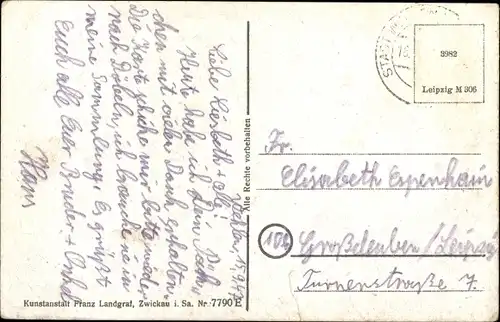 Liebe Liesbeth + alle!
Heute habe ich Dein
chen mit vielen Dank erhalten,
Die Karte schicke mir bitte wieder
nach Döbeln, ich brauche sie in
meine Sammlung. Es grüßt
Euch alle Euer Bruder + Onkel
Hans
Alle Rechte vorbehalten
3982
Leipzig M 306
Fr.
Elisabeth Espenhain
(10b) Großdeuben/Leipzig
Turnerstraße 7.
Kunstanstalt Franz Landgraf, Zwickau i. Sa. Nr. 7790 E